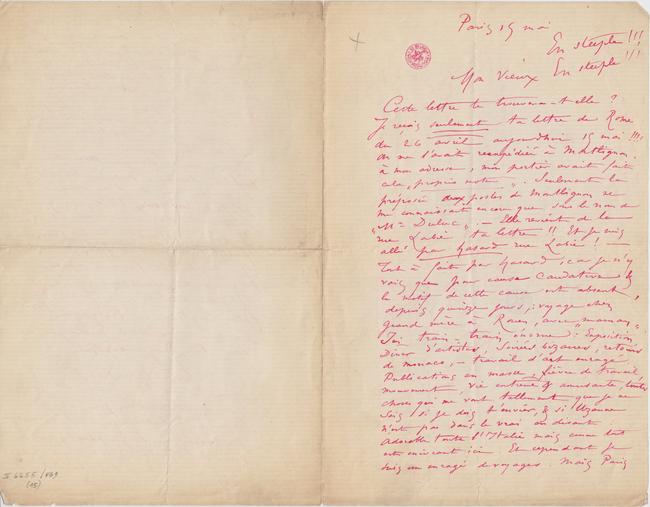 Paris 15 mai
En steeple !!!
En steeple !!!
Mon Vieux
Cette lettre te trouvera-t-elle ?
Je reçois seulement ta lettre de Rome
du 26 avril aujourdhui 15 mai !!!
On me l'avait réexpédiée à Matignon.
à mon adresse, mon portier avait fait
cela, "proprio motu". Seulement la
préposée aux postes de Matignon ne
me connaissait encore que sous le nom de
"Mr Duluc". - Elle revient de la
rue Labie ta lettre !! Et je suis
allé par hasard rue Labie ! -
Tout à fait par hasard, car je n'y
vais que pour cause caudative &
le motif de cette cause est absent,
depuis quinze jours, : voyage chez
grand mère à Rouen, avec "maman".
Ici train-train énorme : Exposition
Diner d'artistes, Soirées bizarres, retours
de monaco, - travail d'art enragé
Publications en masse, fièvre de travail,
mouvement, vie entière & amusante, toutes
choses qui me vont tellement que je ne
sais si je dois t'envier, & si Uzanne
n'est pas dans le vrai en disant
Adorable toute l'Italie mais comme tout
est enivrant ici. Et cependant je
suis un enragé de voyages. Mais Paris
II 6655/469
(15)